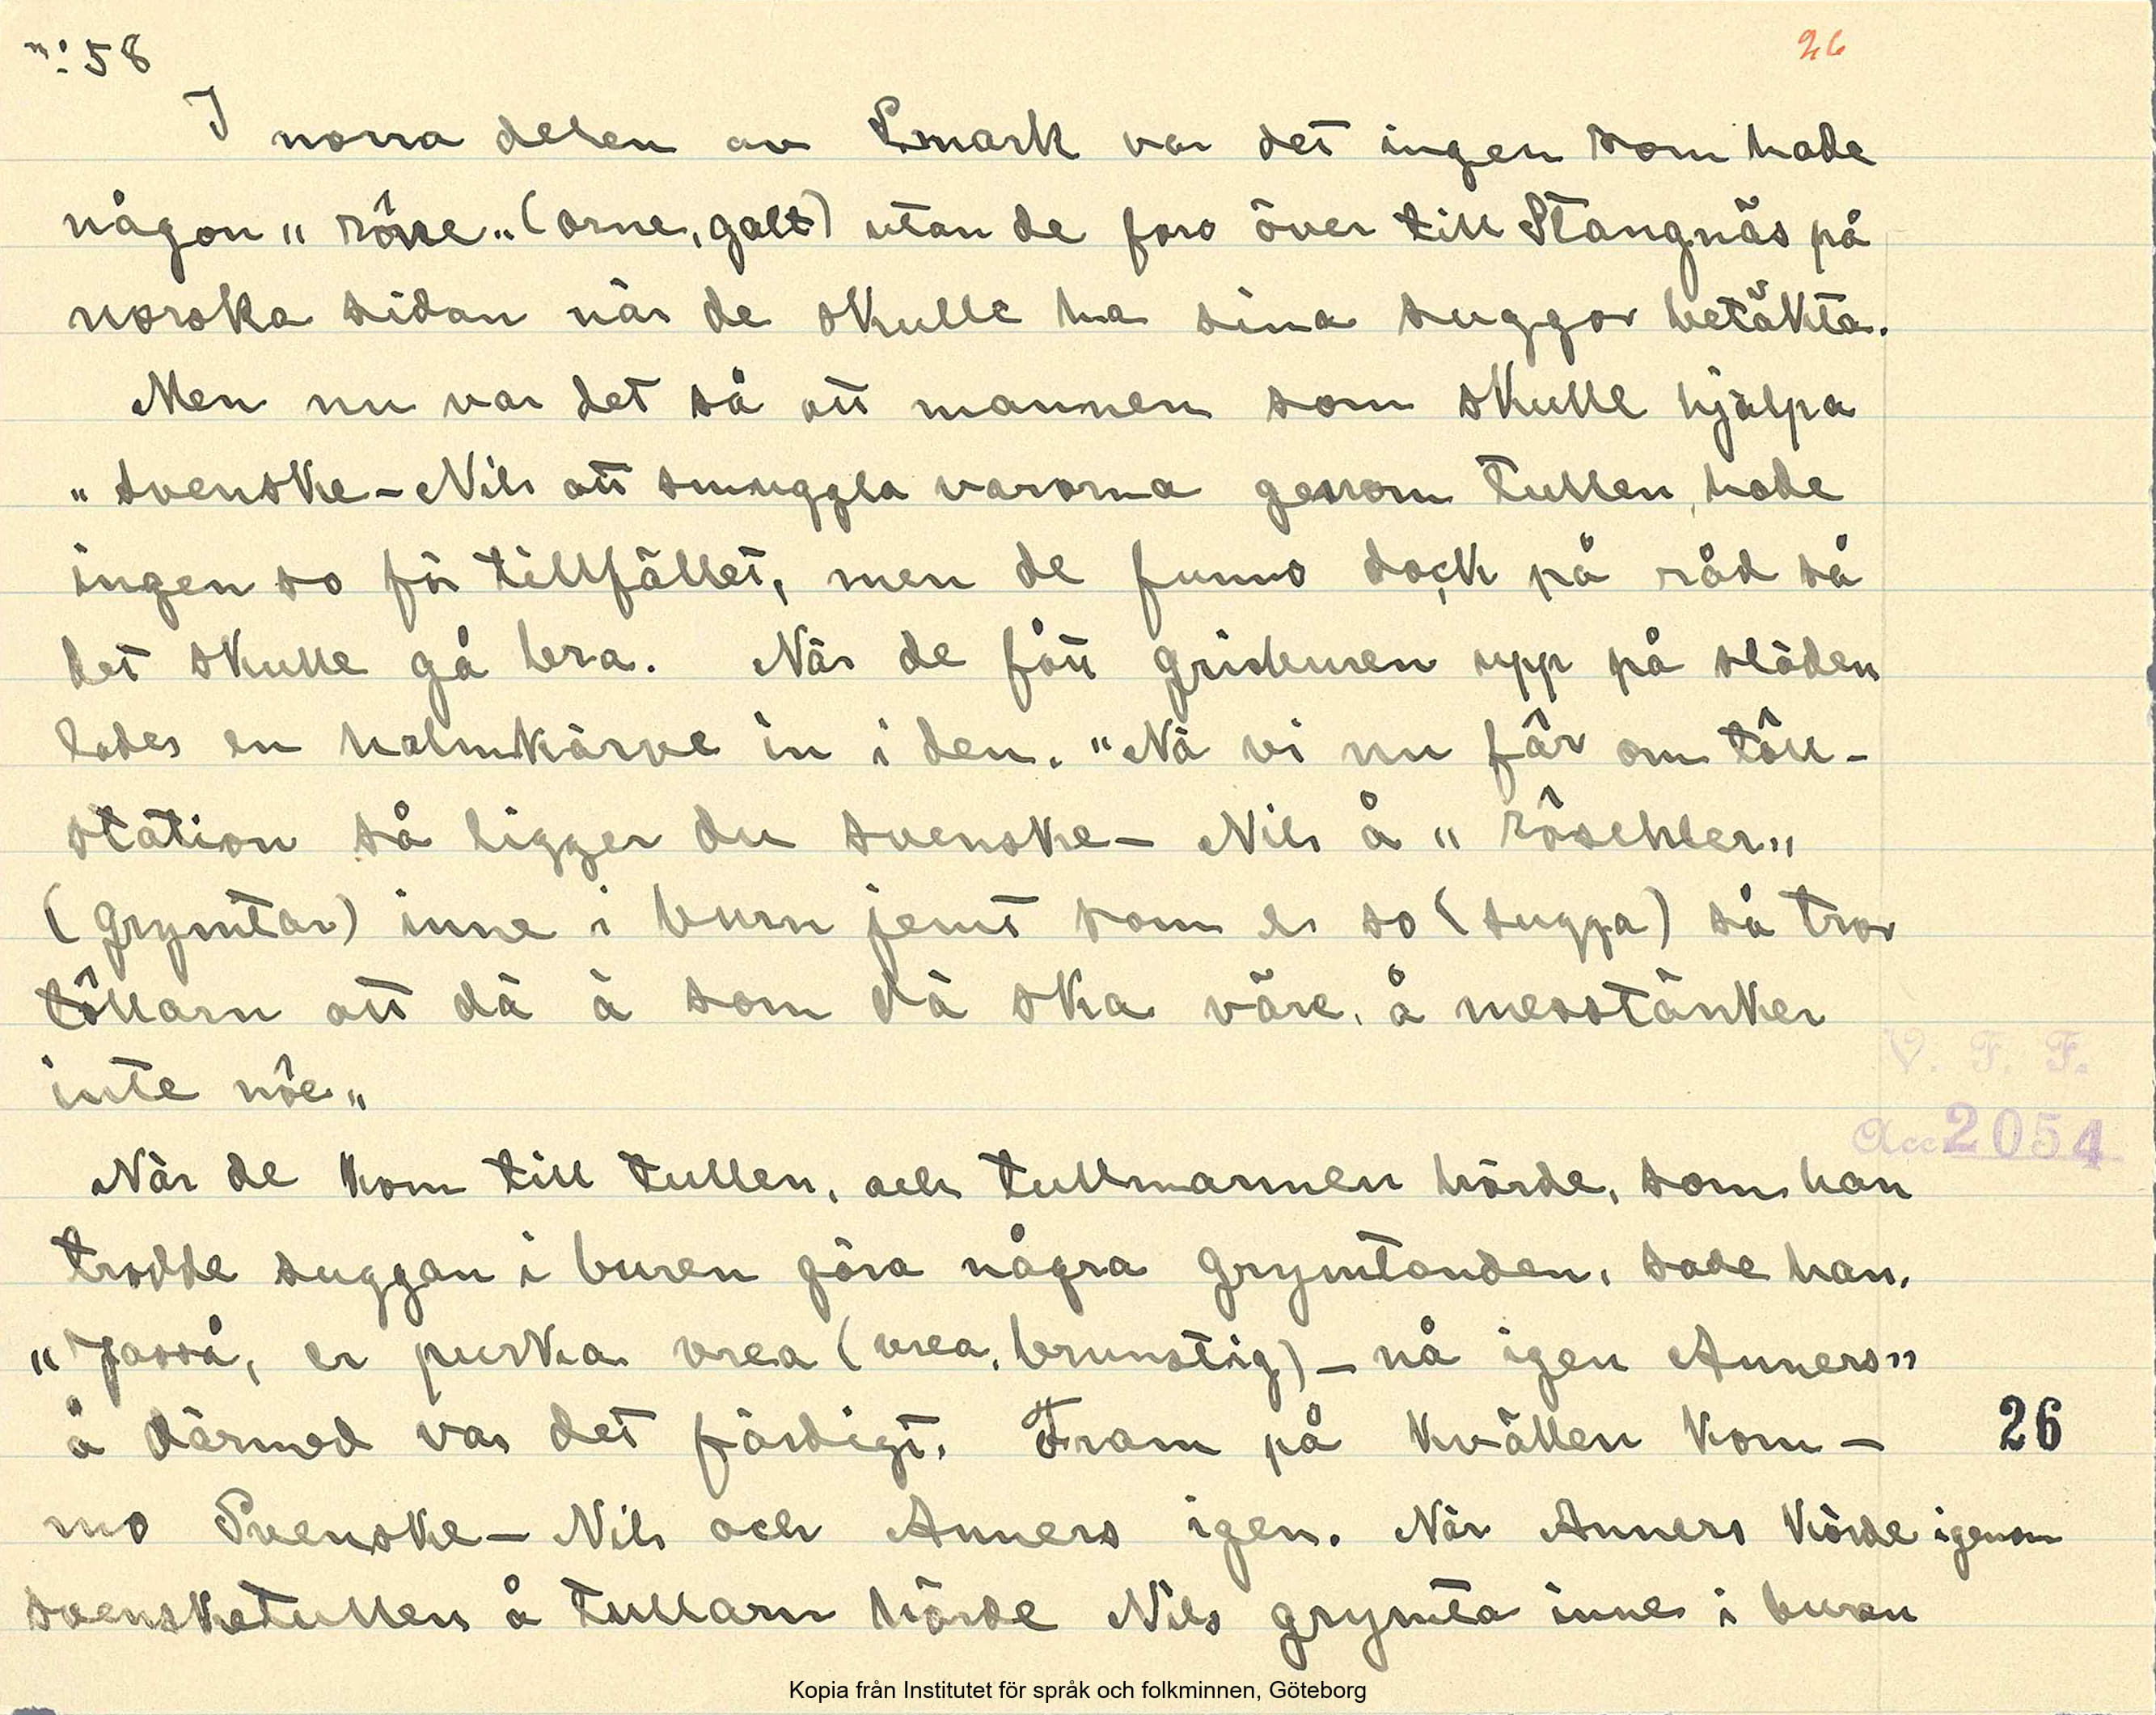 n:58
26
I norra delen av Lmark var det ingen som hade
någon „röne„ (orne, galt) utan de foro över till Stangnäs på
norska sidan när de skulle ha sina suggor betäkta.
Men nu var det så att mannen som skulle hjälpa
„svenske-Nils att smuggla varorna genom tullen, hade
ingen so för tillfället, men de funno dock på råd så
det skulle gå bra. När de fått grisburen upp på släden
lades en halmkärve in i den. "Nå vi nu får om töll-
station så ligger du svenske- Nils å „
(grymtar) inne i burn jemt som en so (sugga) så tror
töllarn att dä ä som dä ska väre, å messtänker
inte nôe„
När de kom till tullen, och tullmannen hörde, som han
trodde suggan i buren göra några grymtanden, sade han.
„Jasså, er purka vrea (vrea, brunstig) - nå igen Anners"
å därmed var det färdigt. Fram på kvällen kom-
mo Svenske- Nils och Anners igen. När Anners körde igenom
svensketullen å tullarn hörde Nils grymta inne i buren
V. F. F.
Acc 2054
26
Kopia från Institutet för språk och folkminnen, Göteborg